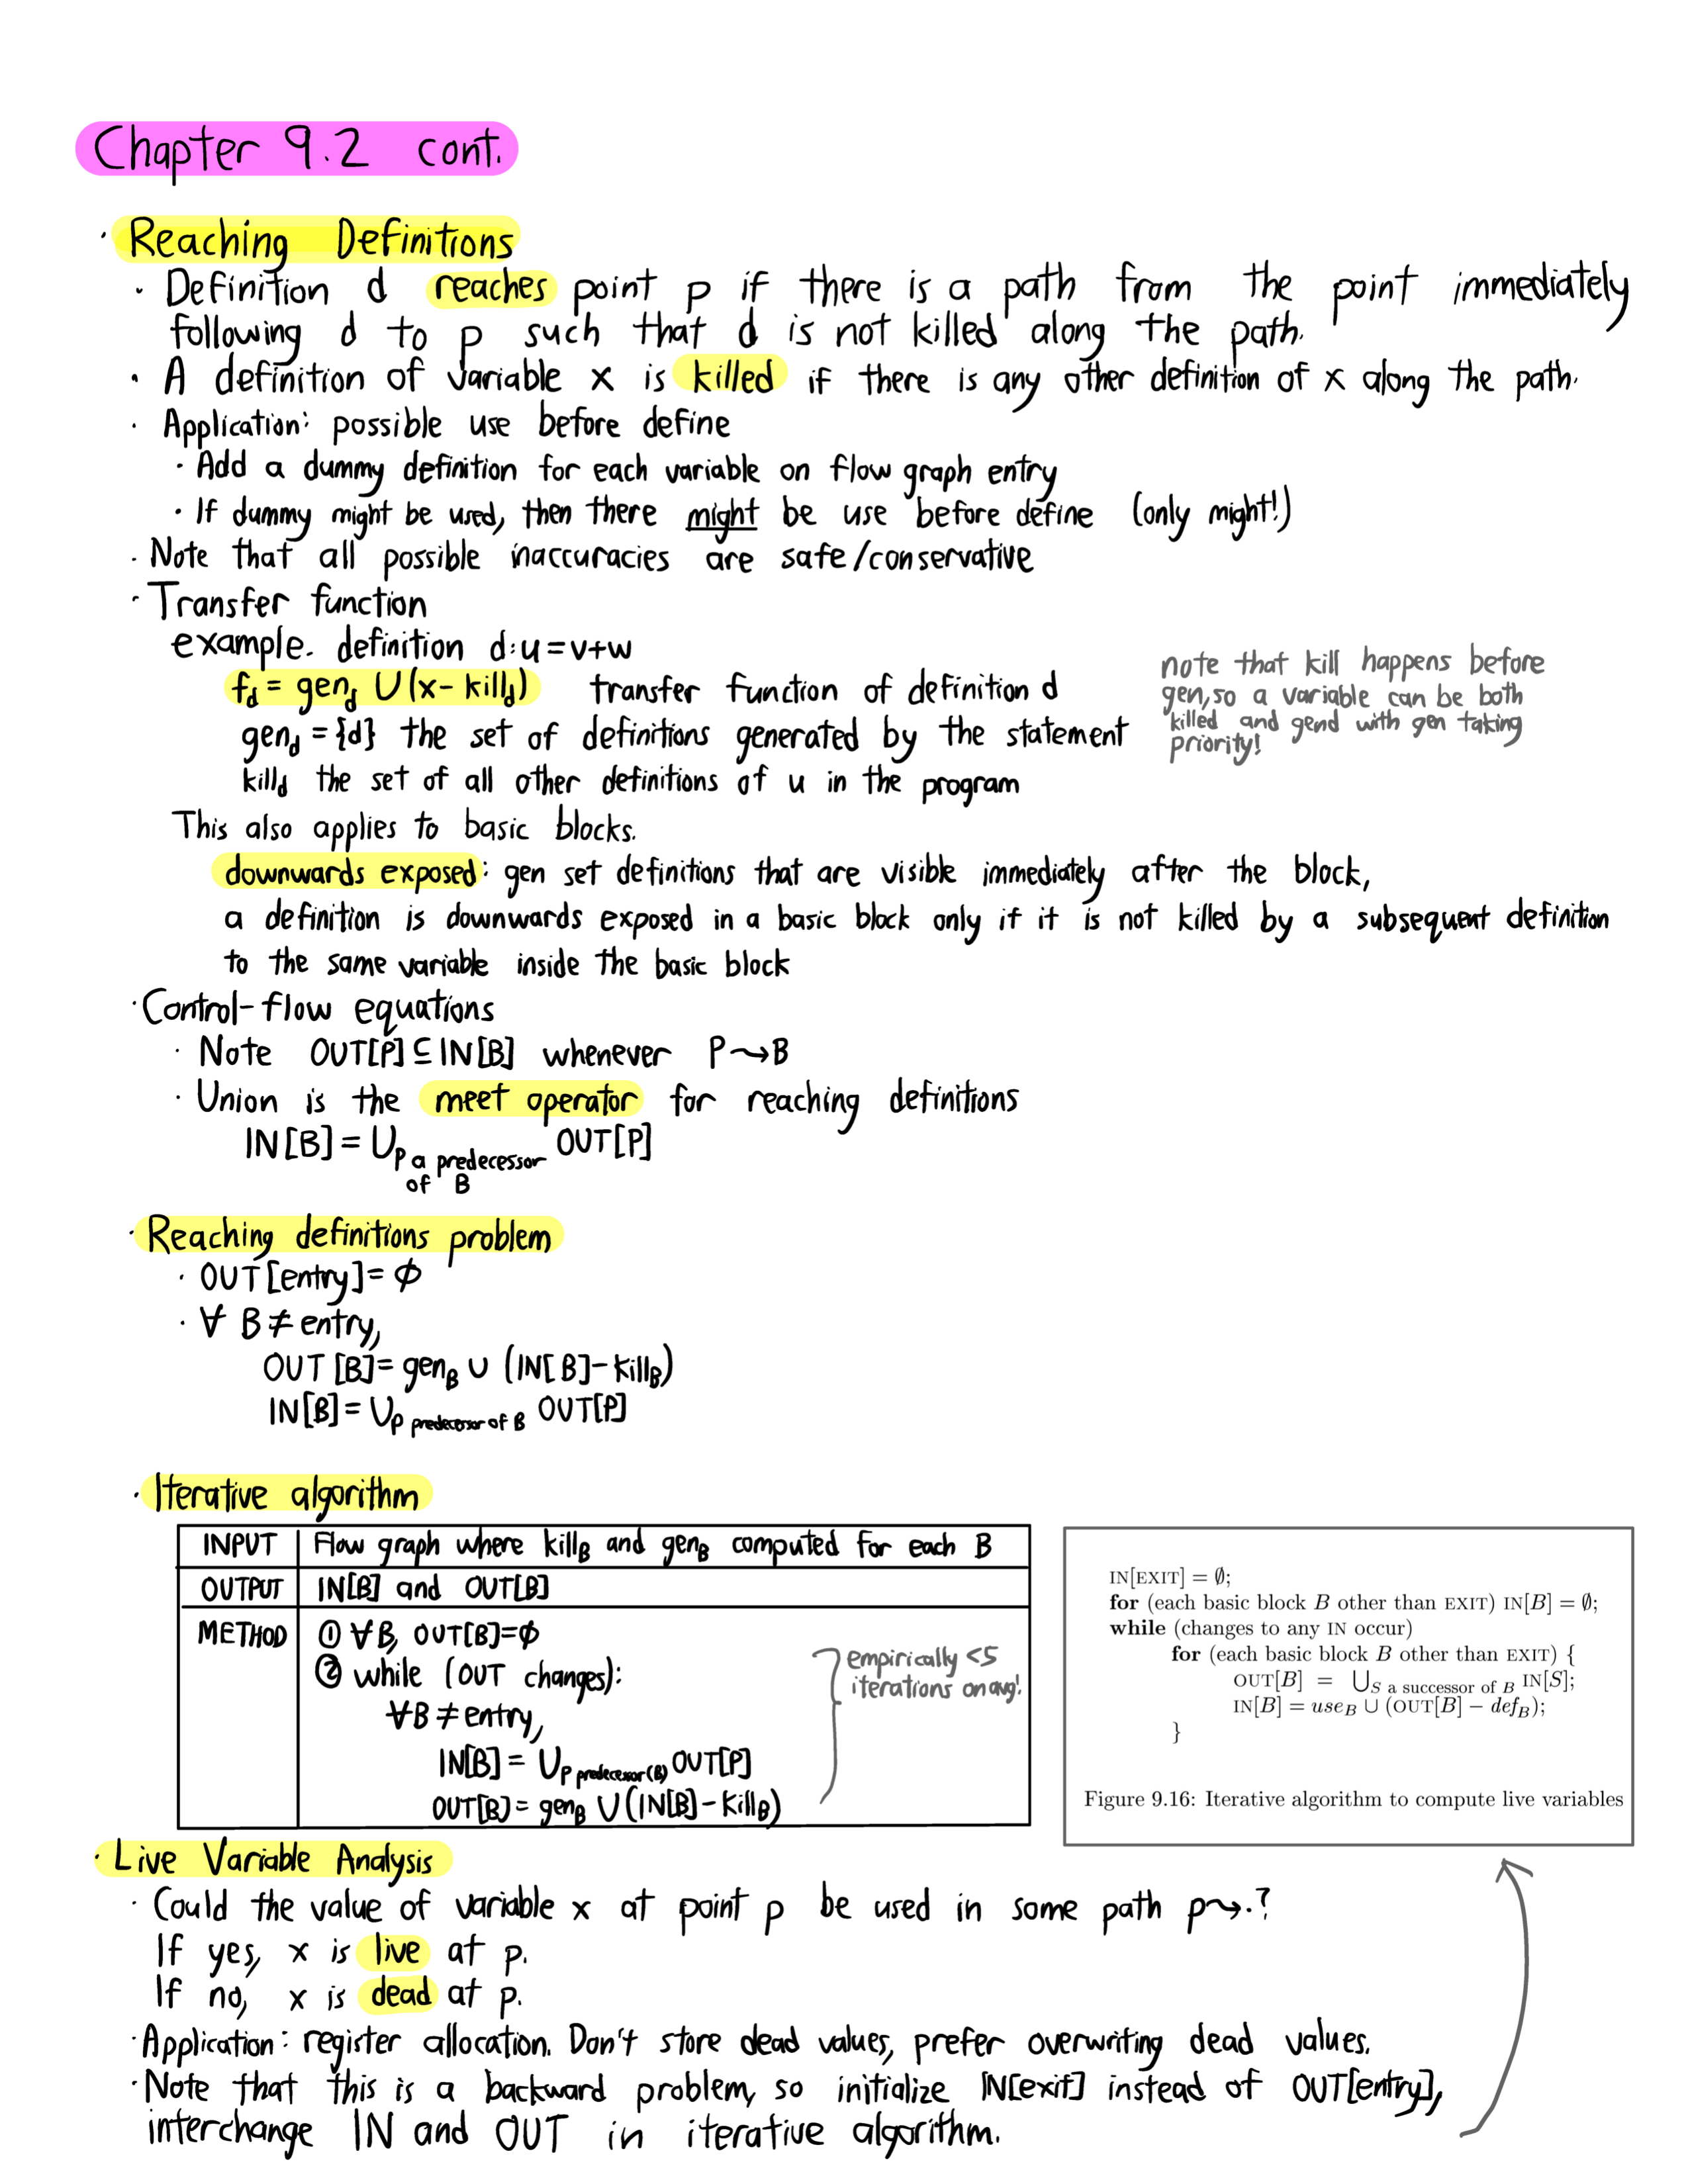 Chapter 9.2 cont.
· Reaching Definitions
· Definition d reaches point p if there is a path from the point immediately
following d to p such that d is not killed along the path.
· A definition of variable x is killed if there is any other definition of x along the path.
· Application: possible use before define
· Add a dummy definition for each variable on flow graph entry
· If dummy might be used, then there might be use before define (only might!)
· Note that all possible inaccuracies are safe/conservative
· Transfer function
example. definition d:u=v+w
f_d = gen_d ∪ (x - kill_d) transfer function of definition d
gen_d = {d} the set of definitions generated by the statement
kill_d the set of all other definitions of u in the program
note that kill happens before
gen, so a variable can be both
killed and gend with gen taking
priority!
This also applies to basic blocks.
downwards exposed: gen set definitions that are visible immediately after the block,
a definition is downwards exposed in a basic block only if it is not killed by a subsequent definition
to the same variable inside the basic block
· Control-flow equations
· Note OUT[P] ⊆ IN[B] whenever P⇝B
· Union is the meet operator for reaching definitions
IN[B] = ∪ P a predecessor OUT[P]
of B
· Reaching definitions problem
· OUT[entry] = ∅
· ∀ B ≠ entry,
OUT[B] = gen_B ∪ (IN[B] - kill_B)
IN[B] = ∪ P predecessor of B OUT[P]
· Iterative algorithm
INPUT Flow graph where kill_B and gen_B computed for each B
OUTPUT IN[B] and OUT[B]
METHOD ① ∀B, OUT[B]=∅
② while (OUT changes):
∀B ≠ entry,
IN[B] = ∪ P predecessor(B) OUT[P]
OUT[B] = gen_B ∪ (IN[B] - kill_B)
empirically <5
iterations on avg!
IN[EXIT] = ∅;
for (each basic block B other than EXIT) IN[B] = ∅;
while (changes to any IN occur)
for (each basic block B other than EXIT) {
OUT[B] = ⋃ S a successor of B IN[S];
IN[B] = use_B ∪ (OUT[B] − def_B);
}
Figure 9.16: Iterative algorithm to compute live variables
· Live Variable Analysis
· Could the value of variable x at point p be used in some path p⇝.?
If yes, x is live at p.
If no, x is dead at p.
· Application: register allocation. Don't store dead values, prefer overwriting dead values.
· Note that this is a backward problem, so initialize IN[exit] instead of OUT[entry],
interchange IN and OUT in iterative algorithm.